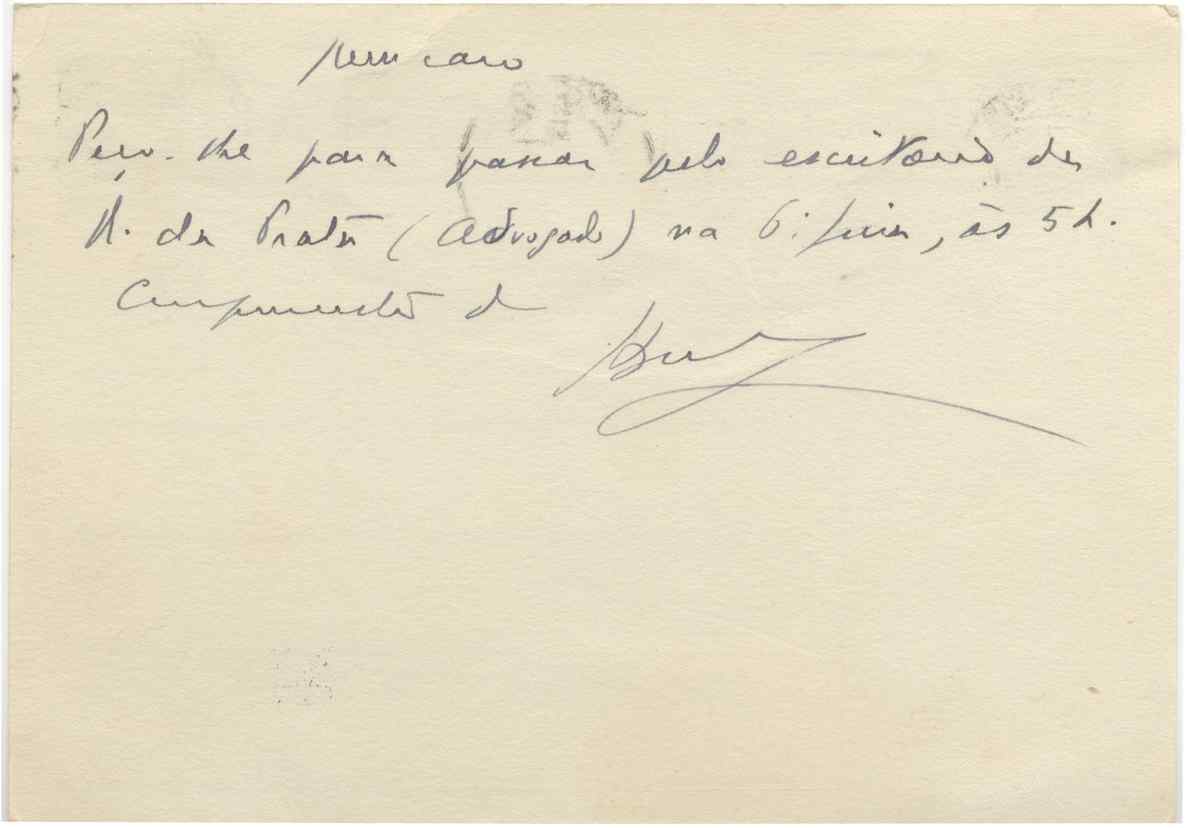 meu caro
Peço-lhe para passar pelo escritório da
R. da Prata (Advogado) na 6ª feira, às 5 h.
Cumprimentos de